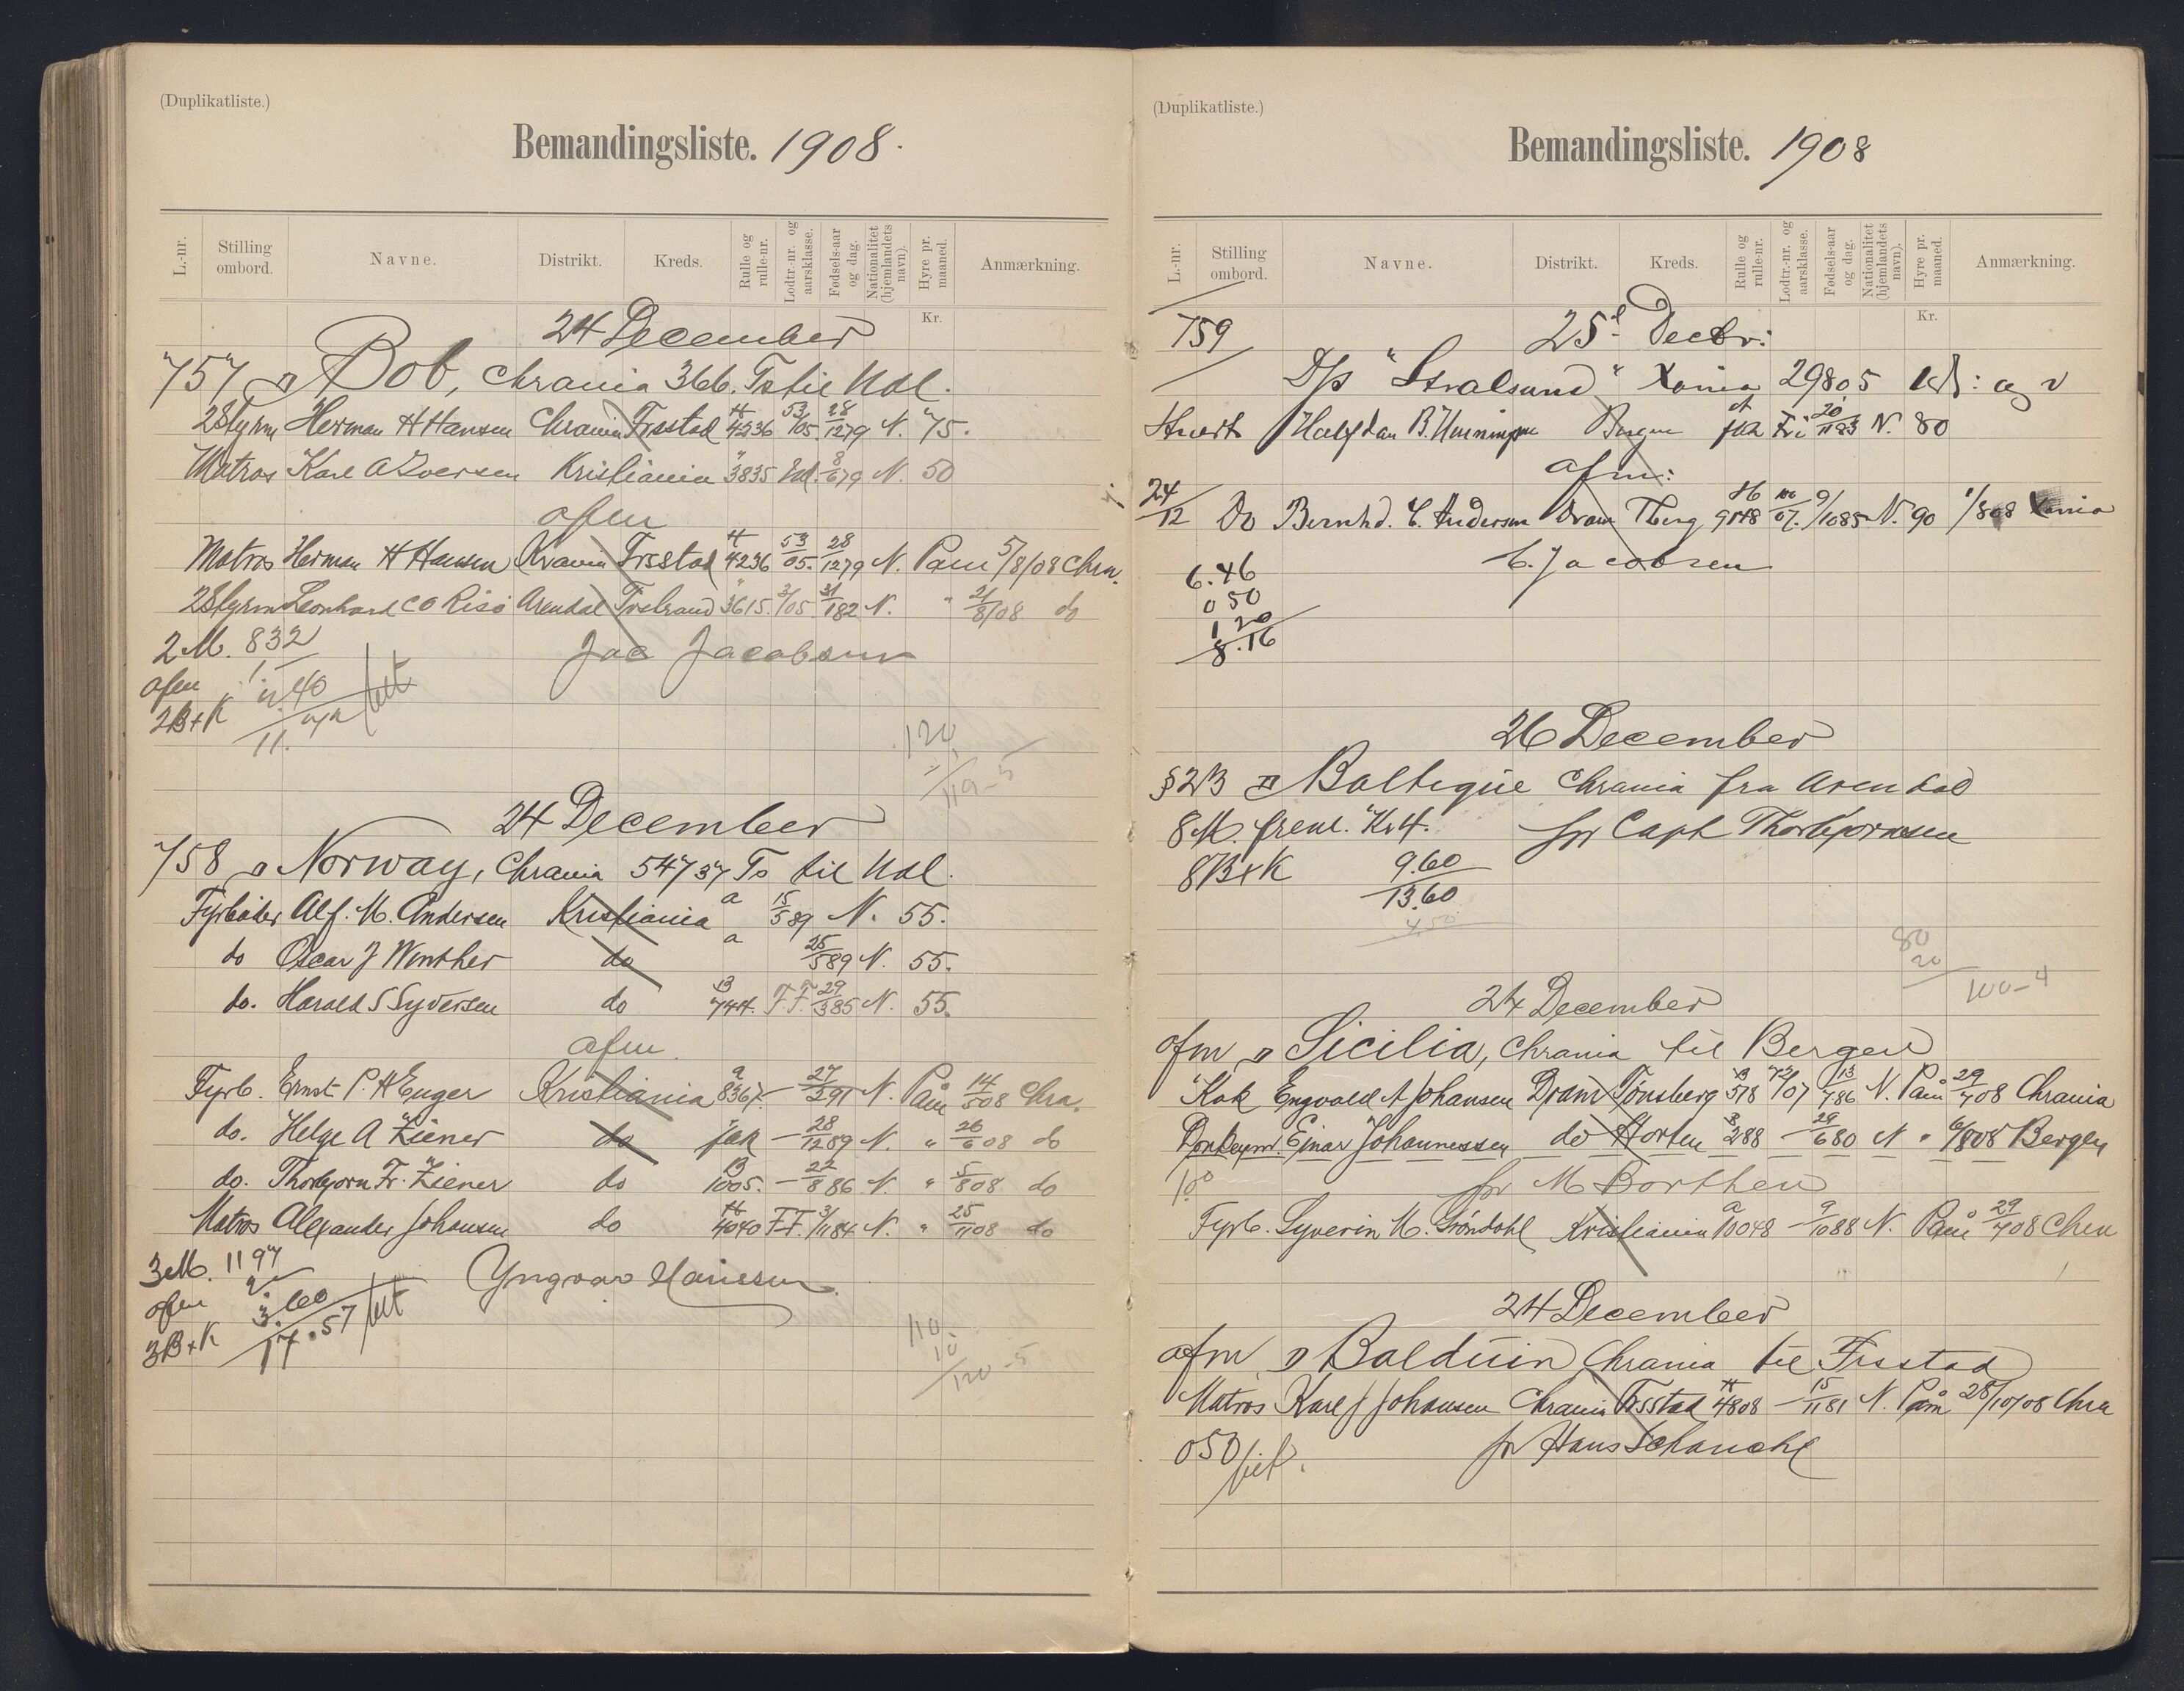 (Duplikatliste.)
Bemandingsliste. 1908.
L.-nr.
Stilling ombord.
Navne.
Distrikt.
Kreds.
Rulle og rulle-nr.
Lodtr.-nr. og aarsklasse.
Fødsels-aar og dag.
Nationalitet (hjemlandets navn).
Hyre pr. maaned.
Anmærkning.
Kr.
24 December
757 Bob, Chrania 366. Ts til Udl.
2Styrm Herman H Hansen Chrania Frsstad 4236 53/05 28/1279 N. 75.
Matros Karl A Iversen Kristiania 3835 8/679 N. 50
afm
Matros Herman H Hansen Krania Frsstad 4236 53/05. 28/1279 N. Paam 5/8/08 Chra.
2Styrm Leonhard C O Risö Arendal 3615. 2/05 31/182 N. " 21/8/08 do
2 M. 832
Jac Jacobsen
afm 1.
2B+K 2.40
11.
120
119-5
24 December
758 Norway, Chrania 54737 Ts til Udl.
Fyrböder Alf. M. Andersen Kristiania a 15/589 N. 55.
do Oscar J Winther do a 25/589 N. 55.
do. Harald S Syversen do B 744. F.F. 29/385 N. 55.
afm.
Fyrb. Ernst P. H Enger Kristiania a 8367. - 27/291 N. Paam 14/508 Chra.
do. Helge A Ziener do - 28/1289 N. " 26/608 do
do. Thorbjorn Fr. Ziener do B 1005. - 22/886 N. " 5/808 do
Matros Alexander Johansen do 4040 F.F. 3/1184 N. " 25/1108 do
3M. 1197
Yngvar
afm 2.
3B+K 3.60
17.57
110
10
120-5
(Duplikatliste.)
Bemandingsliste. 1908
L.-nr.
Stilling ombord.
Navne.
Distrikt.
Kreds.
Rulle og rulle-nr.
Lodtr.-nr. og aarsklasse.
Fødsels-aar og dag.
Nationalitet (hjemlandets navn).
Hyre pr. maaned.
Anmærkning.
Kr.
759
25d Decbr:
D/s "Stralsund" Xania 29805
Halfdan B. Bergen Fri 20/1183 N. 80
afm:
24/12 Do Bernhd. C. Andersen Dram Tberg 9148 07. 9/1085 N. 90 1/808 Xania
C. Jacobsen
6.46
0 50
1 20
8.16
26 December
§2B Baltique Chrania fra Arendal
8 M. frem. Kr 4. for Capt Thorbjornsen
8B+K 9.60
13.60
4.50
80
20
100-4
24 December
afm Sicilia, Chrania til Bergen
Kok Engvald A Johansen Dram Tønsberg B 578 /07 13/786 N. Paam 29/708 Chrania
Donkeym. Ejnar Johannessen do Horten B 288 - 29/680 N " 6/808 Bergen
1.00
for M Borthen
Fyrb. Syverin M. Gröndahl Kristiania a 10048 - 9/1088 N. Paam 29/708 Chra
24 December
afm Balduin Chrania til Frsstad
Matros Karl J Johansen Chrania Frsstad 4808 - 15/1181 N. Paam 28/10/08 Chra
050
for Hans Schanche